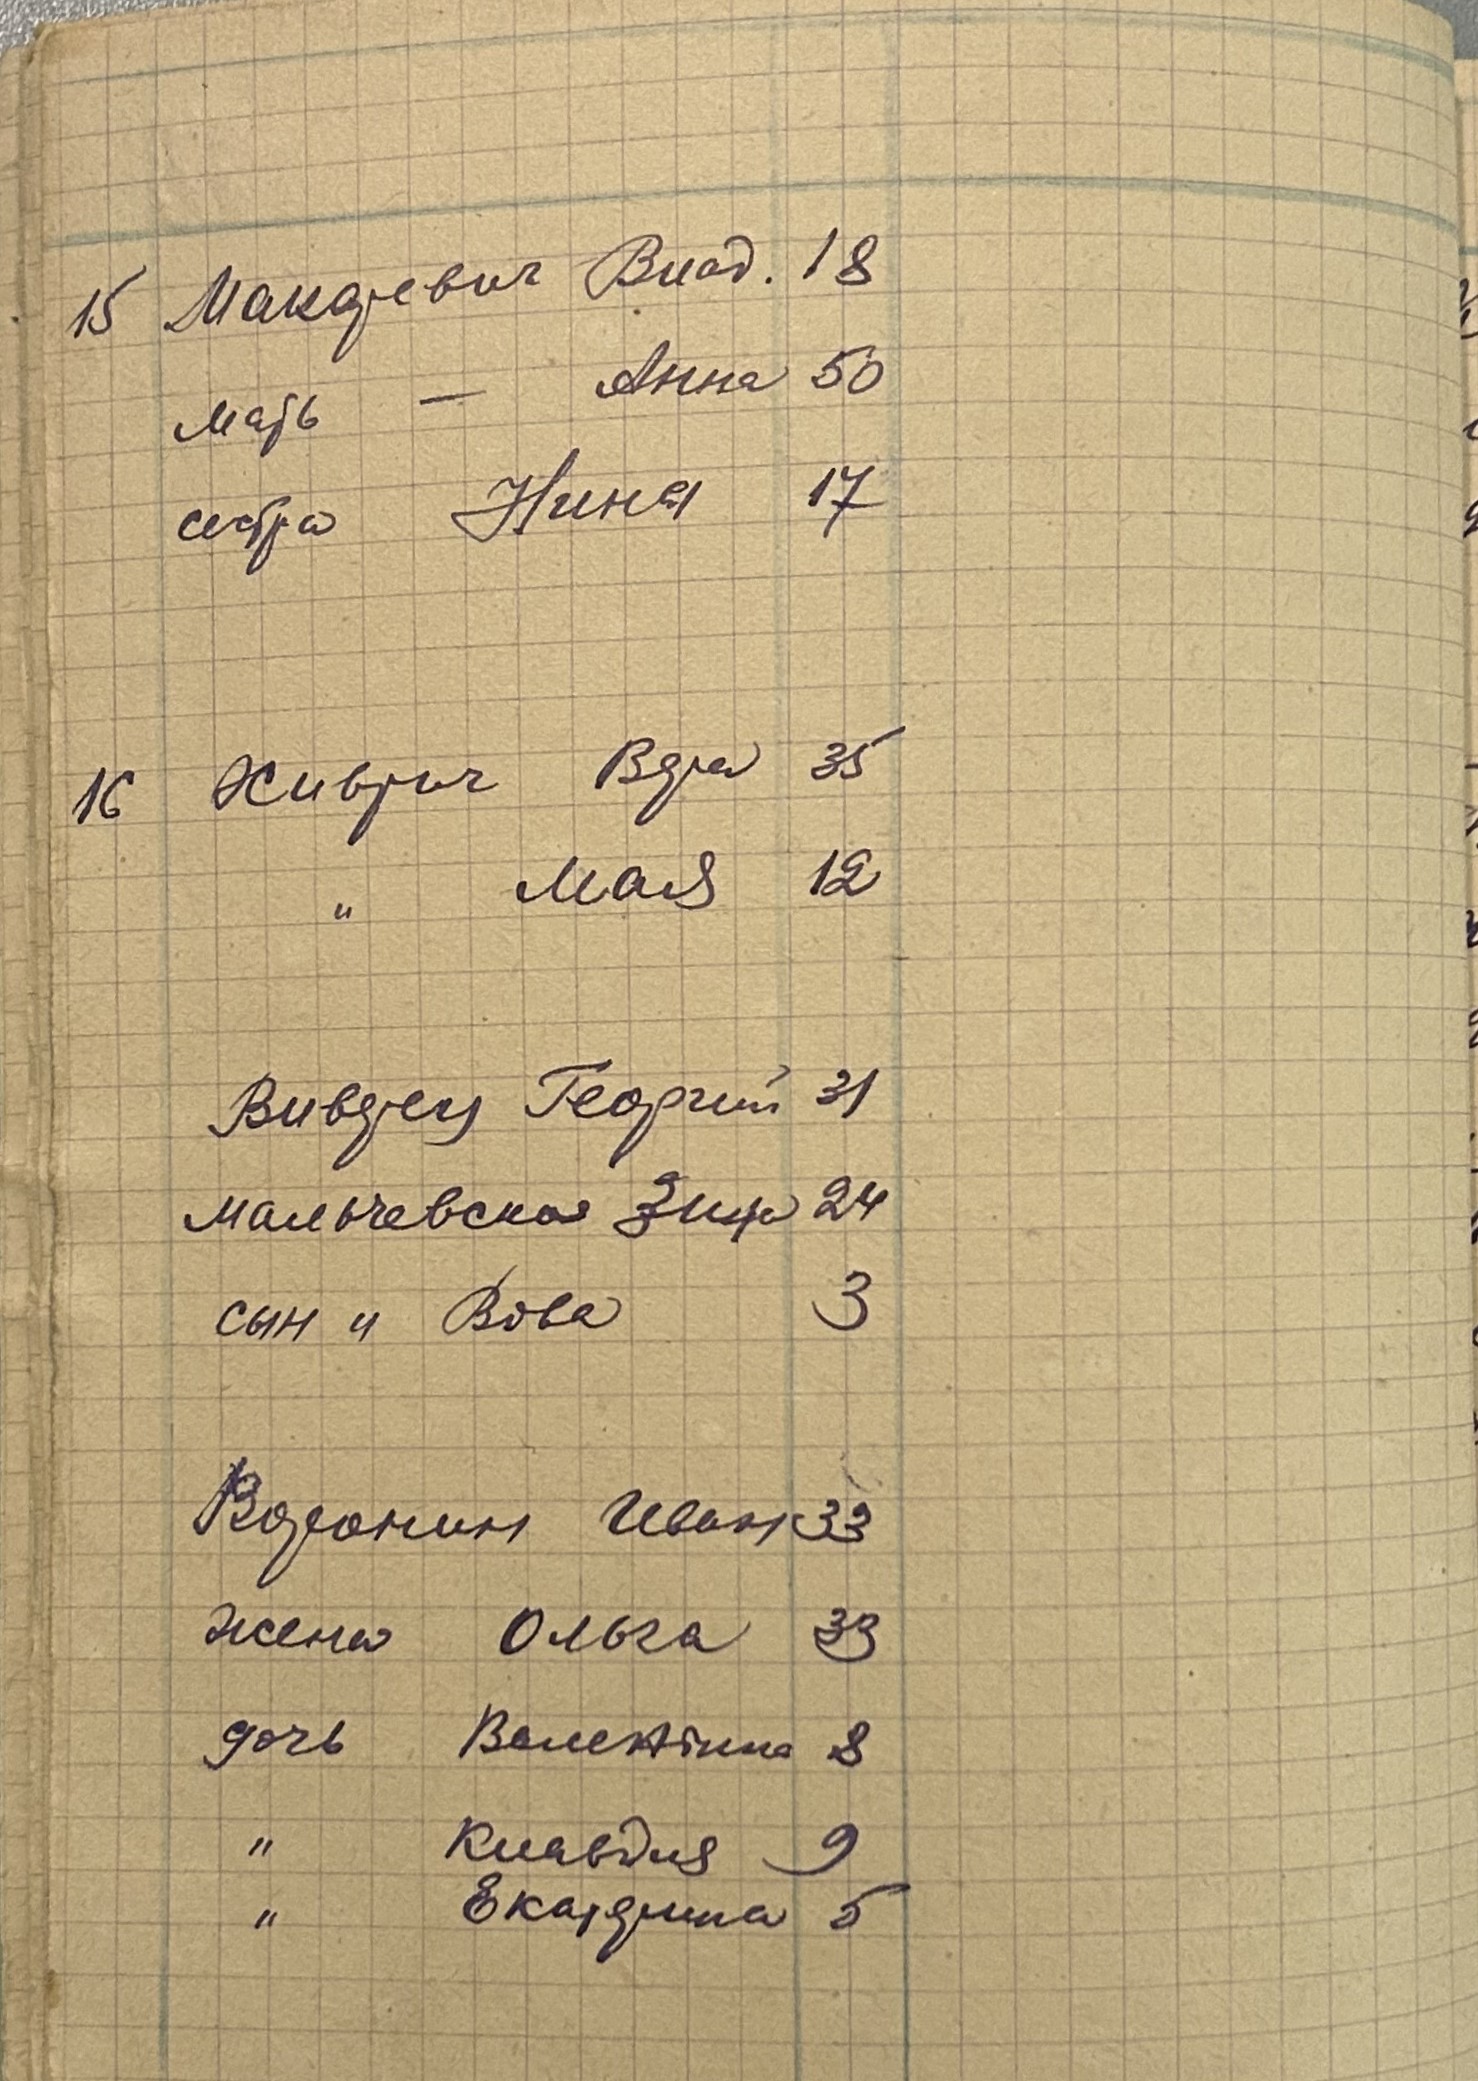 15 Макаревич Влад. 18
мать — Анна 50
сестра Нина 17
16 Вера 35
" Мая 12
Георгий 31
Мальчевская 24
сын " Вова 3
Воронин Иван 33
жена Ольга 33
дочь Валентина 8
" Клавдия 9
" Екатерина 5